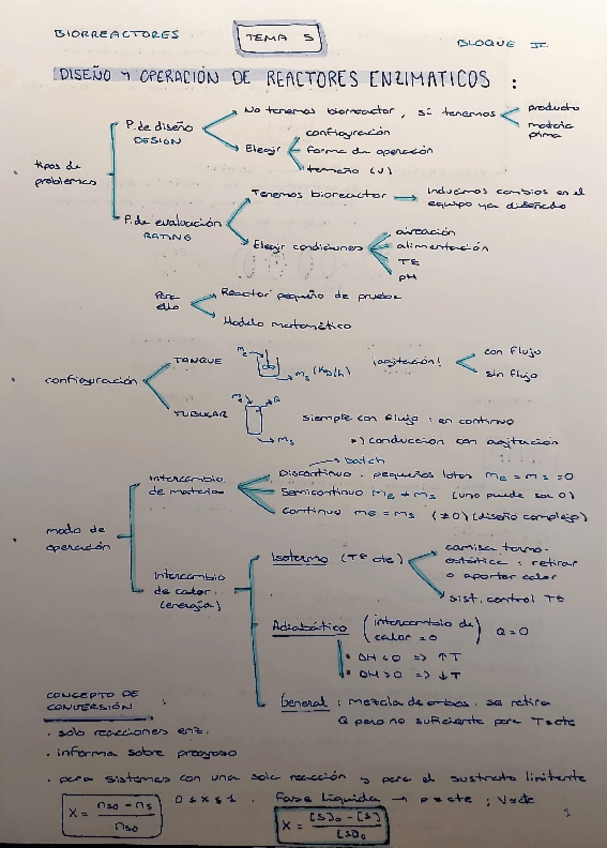 BIORREACTORES
TEMA 5
BLOQUE II
DISEÑO Y OPERACIÓN DE REACTORES ENZIMATICOS :
tipos de problemas
P. de diseño
DESIGN
No tenemos biorreactor, si tenemos
producto
materia prima
Elegir
configuración
forma de operación
tamaño (V)
P. de evaluación
RATING
Tenemos bioreactor → Inducimos cambios en el
equipo ya diseñado
Elegir condiciones
aireación
alimentación
Tª
pH
Para ello
Reactor pequeño de prueba
Modelo matemático
configuración
TANQUE
me
ms (Kg/h)
¡agitación!
con flujo
sin flujo
TUBULAR
me
Q
ms
siempre con flujo : en continuo
*) conducción con agitación
modo de
operación
Intercambio
de materia
batch
Discontinuo. pequeños lotes me = ms = 0
Semicontinuo me ≠ ms (uno puede ser 0)
Continuo me = ms (≠0) (diseño complejo)
Intercambio
de calor
(energía)
Isotermo (Tª cte)
camisa termo-
estática : retirar
o aportar calor
sist. control Tª
Adiabático (intercambio de
calor = 0) Q = 0
ΔH < 0 => ↑T
ΔH > 0 => ↓T
General : mezcla de ambos. se retira
Q pero no suficiente para T=cte
CONCEPTO DE
CONVERSIÓN :
. solo reacciones enz.
. informa sobre progreso
. para sistemas con una sola reacción y para el sustrato limitante
X = nso - ns / nso
0 ≤ x ≤ 1 . Fase líquida → ρ=cte ; V=cte
X = [S]o - [S] / [S]o
1